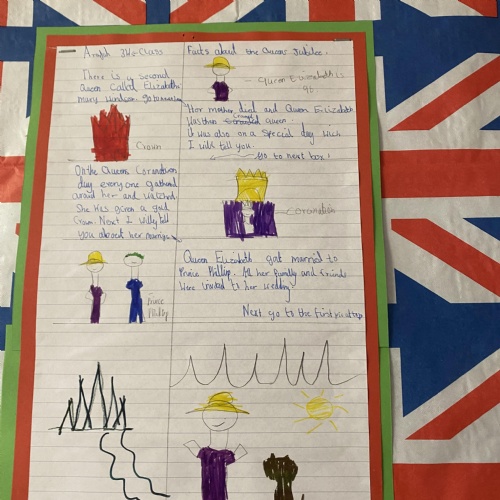 3W-Class
Facts about the Queens Jubilee.
There is a second
Queen called Elizabeth
mary windsor. go to
Queen Elizabeth is
96
Crown
Her mother died and Queen Elizabeth
was then crowned queen
it was also on a special day wich
I will tell you.
Go to next box!
On the Queens Coronation
day everyone gathered
around her and watched.
She was given a gold
Crown. Next I will tell
you about her marrige
coronation
Queen Elizabeth got married to
Prince Phillip. All her family and friends
were invited to her wedding
Prince
Phillip
Next go to the first